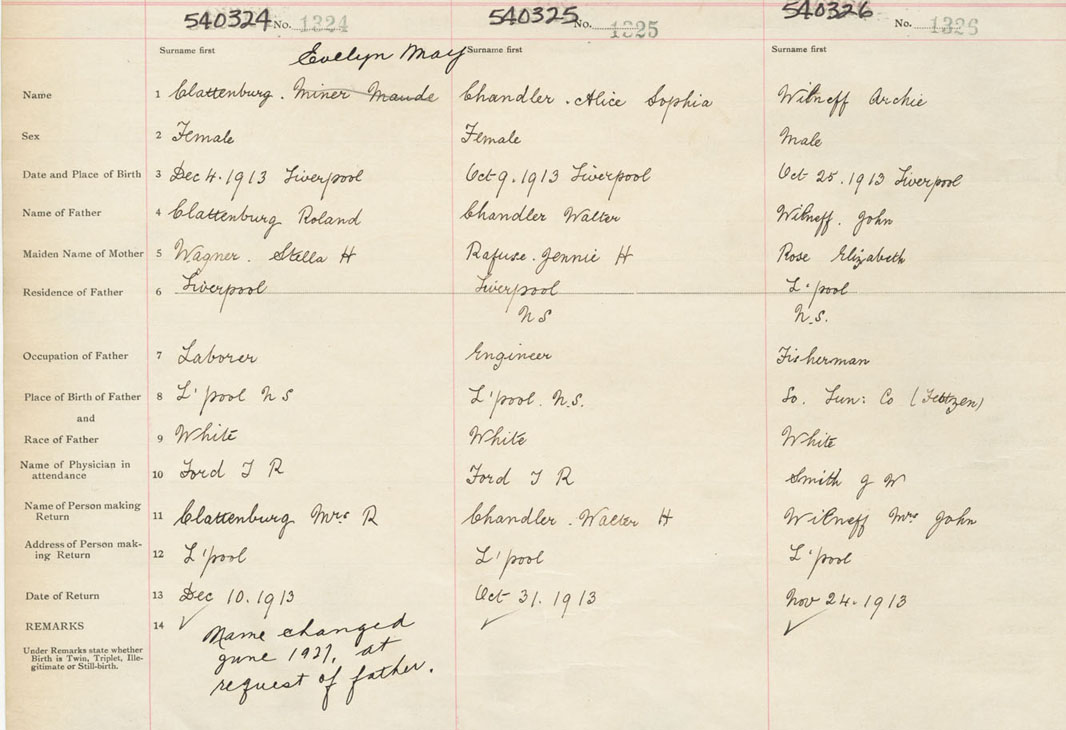 540324 No. 1324 540325 No. 1325 540326 No. 1326
Surname first Evelyn May Surname first Surname first
Name 1 Clattenburg. Miner Maude Chandler. Alice Sophia Witneff Archie
Sex 2 Female Female Male
Date and Place of Birth 3 Dec 4. 1913 Liverpool Oct 9. 1913 Liverpool Oct 25. 1913 Liverpool
Name of Father 4 Clattenburg Roland Chandler Walter Witneff. John
Maiden Name of Mother 5 Wagner. Stella H Rafuse. Jennie H Rose Elizabeth
Residence of Father 6 Liverpool Liverpool L'pool
N S N.S.
Occupation of Father 7 Laborer Engineer Fisherman
Place of Birth of Father 8 L'pool N S L'pool. N.S. So. Lun: Co
and
Race of Father 9 White White White
Name of Physician in
attendance 10 Ford T R Ford T R Smith J W
Name of Person making
Return 11 Clattenburg Mrs R Chandler. Walter H Witneff Mrs John
Address of Person mak-
ing Return 12 L'pool L'pool L'pool
Date of Return 13 Dec 10. 1913 Oct 31. 1913 Nov 24. 1913
REMARKS 14 Name changed
Under Remarks state whether
Birth is Twin, Triplet, Ille-
gitimate or Still-birth.
June 1927, at
request of father.